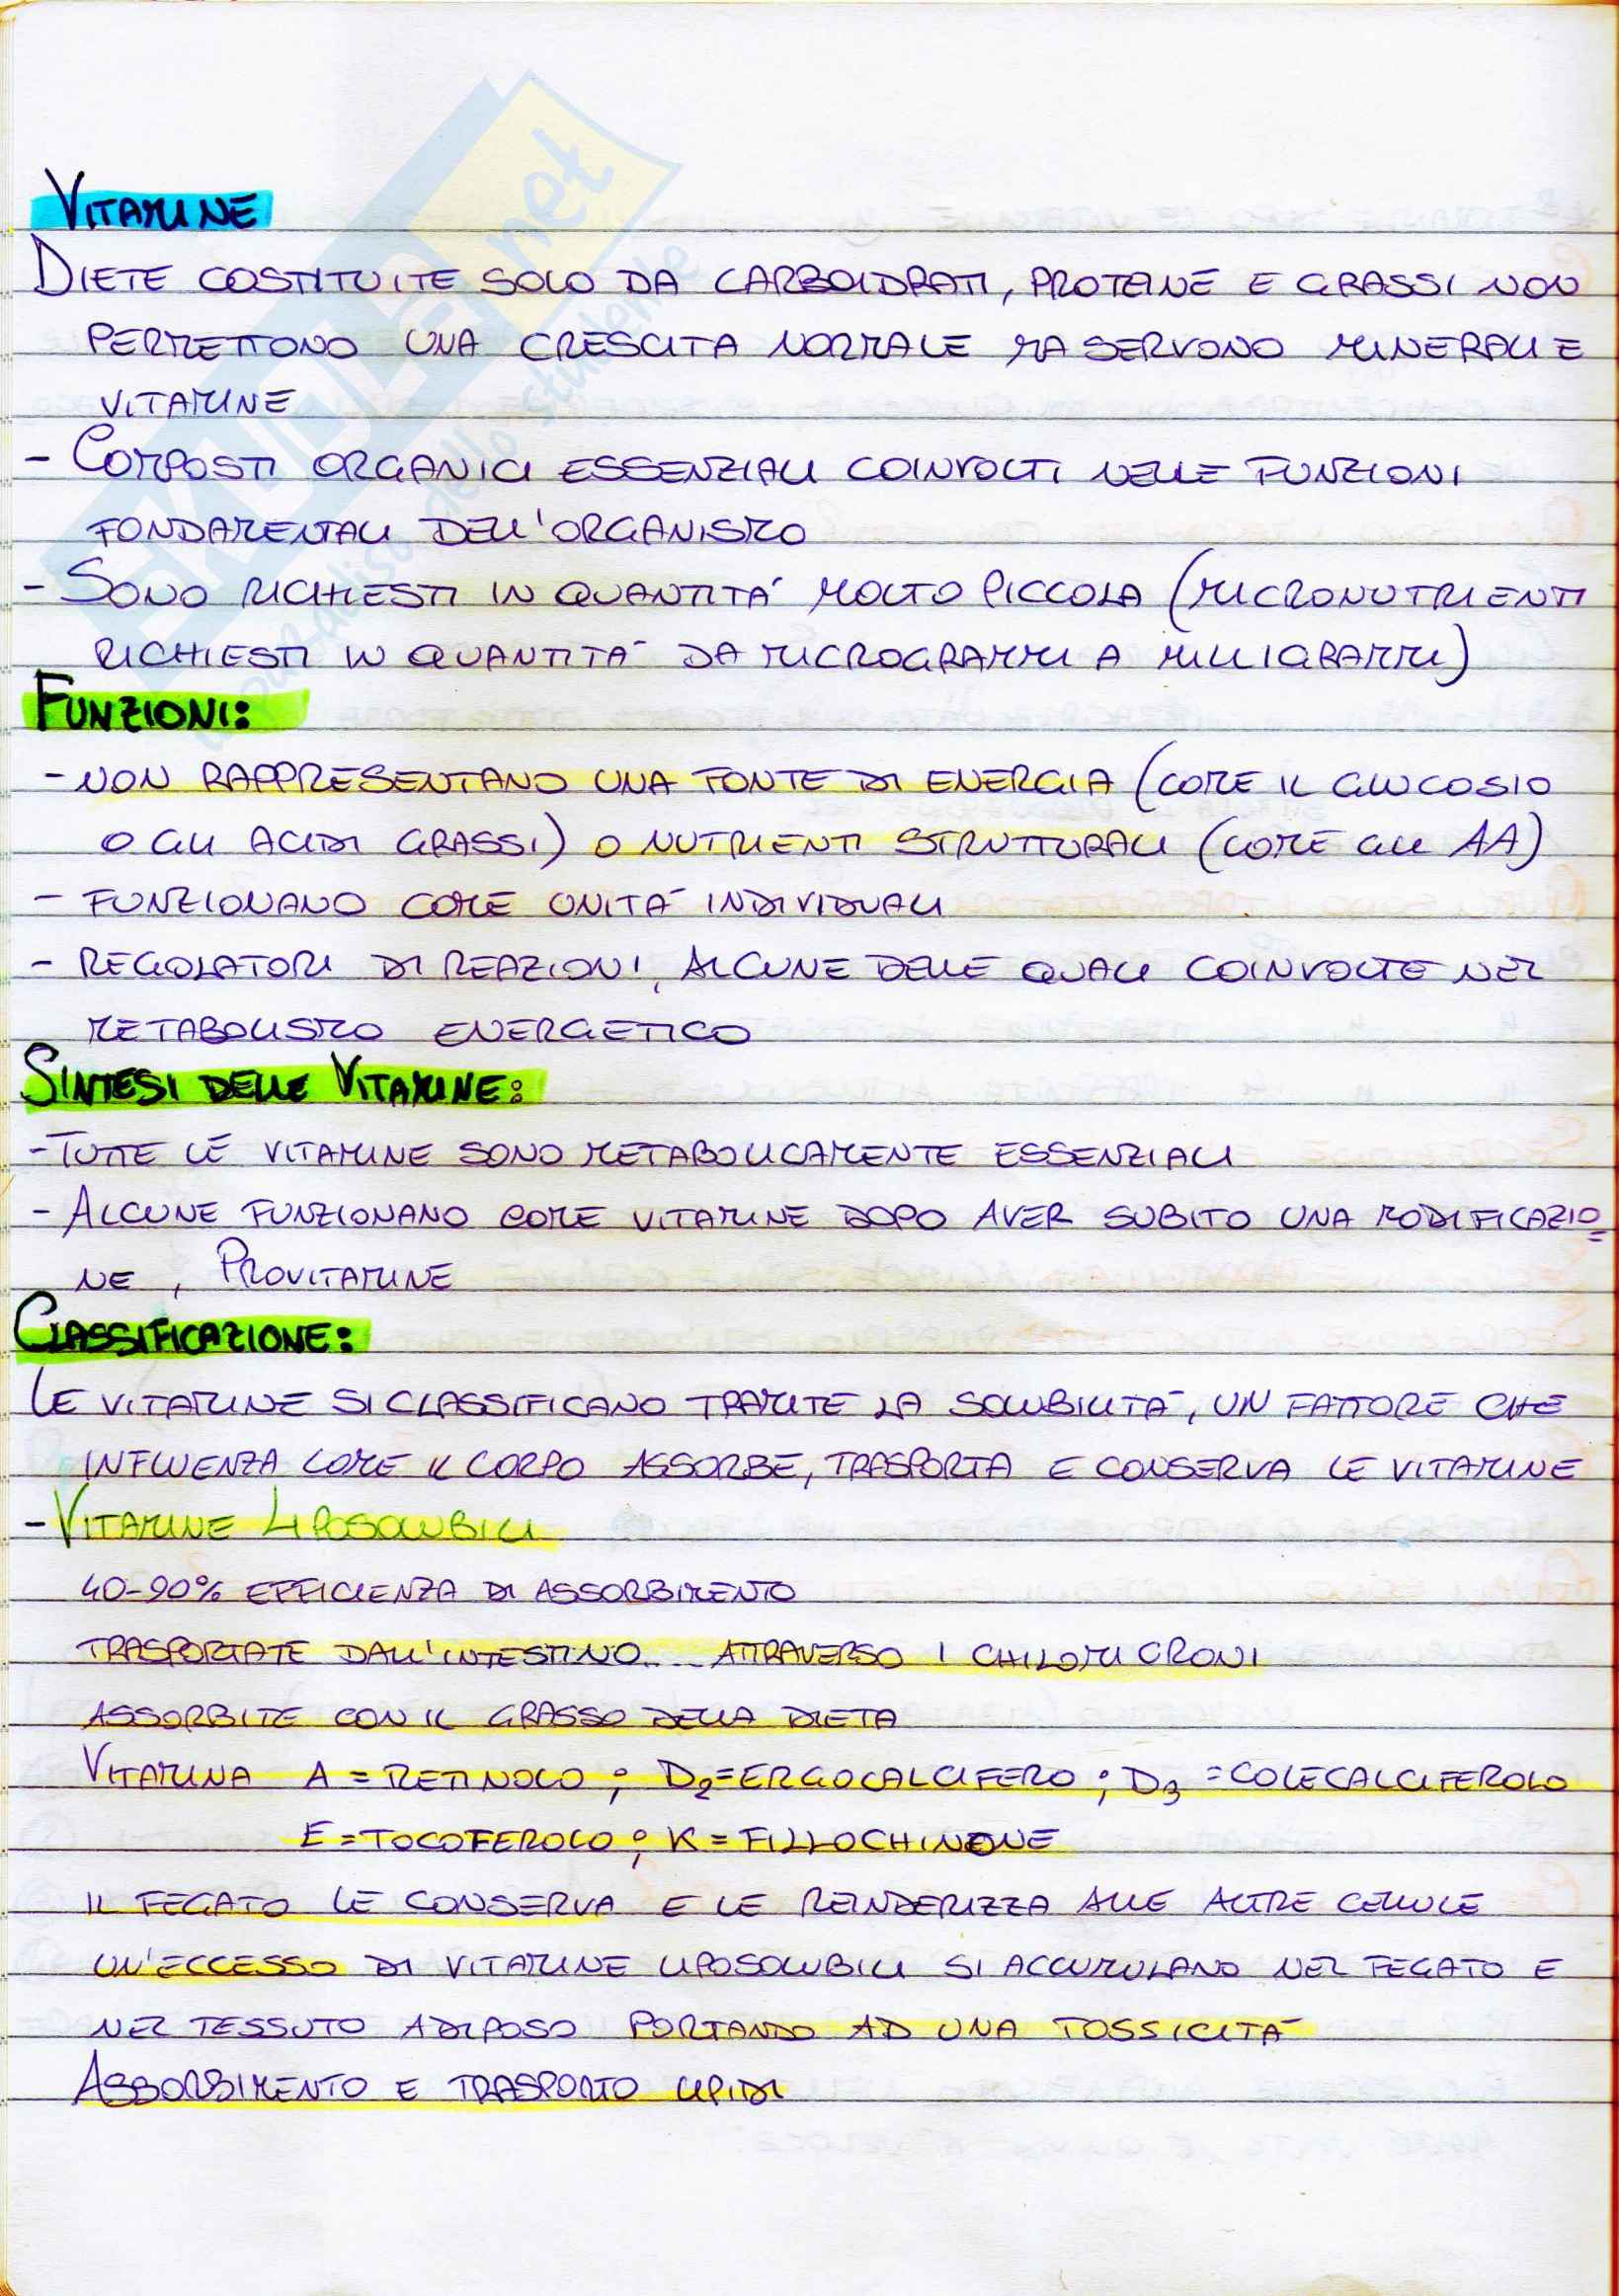 VITAMINE
DIETE COSTITUITE SOLO DA CARBOIDRATI, PROTEINE E GRASSI NON
PERMETTONO UNA CRESCITA NORMALE MA SERVONO MINERALI E
VITAMINE
- COMPOSTI ORGANICI ESSENZIALI COINVOLTI NELLE FUNZIONI
FONDAMENTALI DELL'ORGANISMO
- SONO RICHIESTI IN QUANTITA' MOLTO PICCOLA (MICRONUTRIENTI
RICHIESTI IN QUANTITA' DA MICROGRAMMI A MILLIGRAMMI)
FUNZIONI:
- NON RAPPRESENTANO UNA FONTE DI ENERGIA (COME IL GLUCOSIO
O GLI ACIDI GRASSI) O NUTRIENTI STRUTTURALI (COME GLI AA)
- FUNZIONANO COME UNITA' INDIVIDUALI
- REGOLATORI DI REAZIONI, ALCUNE DELLE QUALI COINVOLTE NEL
METABOLISMO ENERGETICO
SINTESI DELLE VITAMINE:
- TUTTE LE VITAMINE SONO METABOLICAMENTE ESSENZIALI
- ALCUNE FUNZIONANO COME VITAMINE DOPO AVER SUBITO UNA MODIFICAZIO=
NE, PROVITAMINE
CLASSIFICAZIONE:
LE VITAMINE SI CLASSIFICANO TRAMITE LA SOLUBILITA', UN FATTORE CHE
INFLUENZA COME IL CORPO ASSORBE, TRASPORTA E CONSERVA LE VITAMINE
- VITAMINE LIPOSOLUBILI
40-90% EFFICIENZA DI ASSORBIMENTO
TRASPORTATE DALL'INTESTINO... ATTRAVERSO I CHILOMICRONI
ASSORBITE CON IL GRASSO DELLA DIETA
VITAMINA A = RETINOLO ; D2=ERGOCALCIFERO ; D3 = COLECALCIFEROLO
E = TOCOFEROLO ; K = FILLOCHINONE
IL FEGATO LE CONSERVA E LE REINDERIZZA ALLE ALTRE CELLULE
UN'ECCESSO DI VITAMINE LIPOSOLUBILI SI ACCUMULANO NEL FEGATO E
NEL TESSUTO ADIPOSO PORTANDO AD UNA TOSSICITA'
ASSORBIMENTO E TRASPORTO LIPIDI